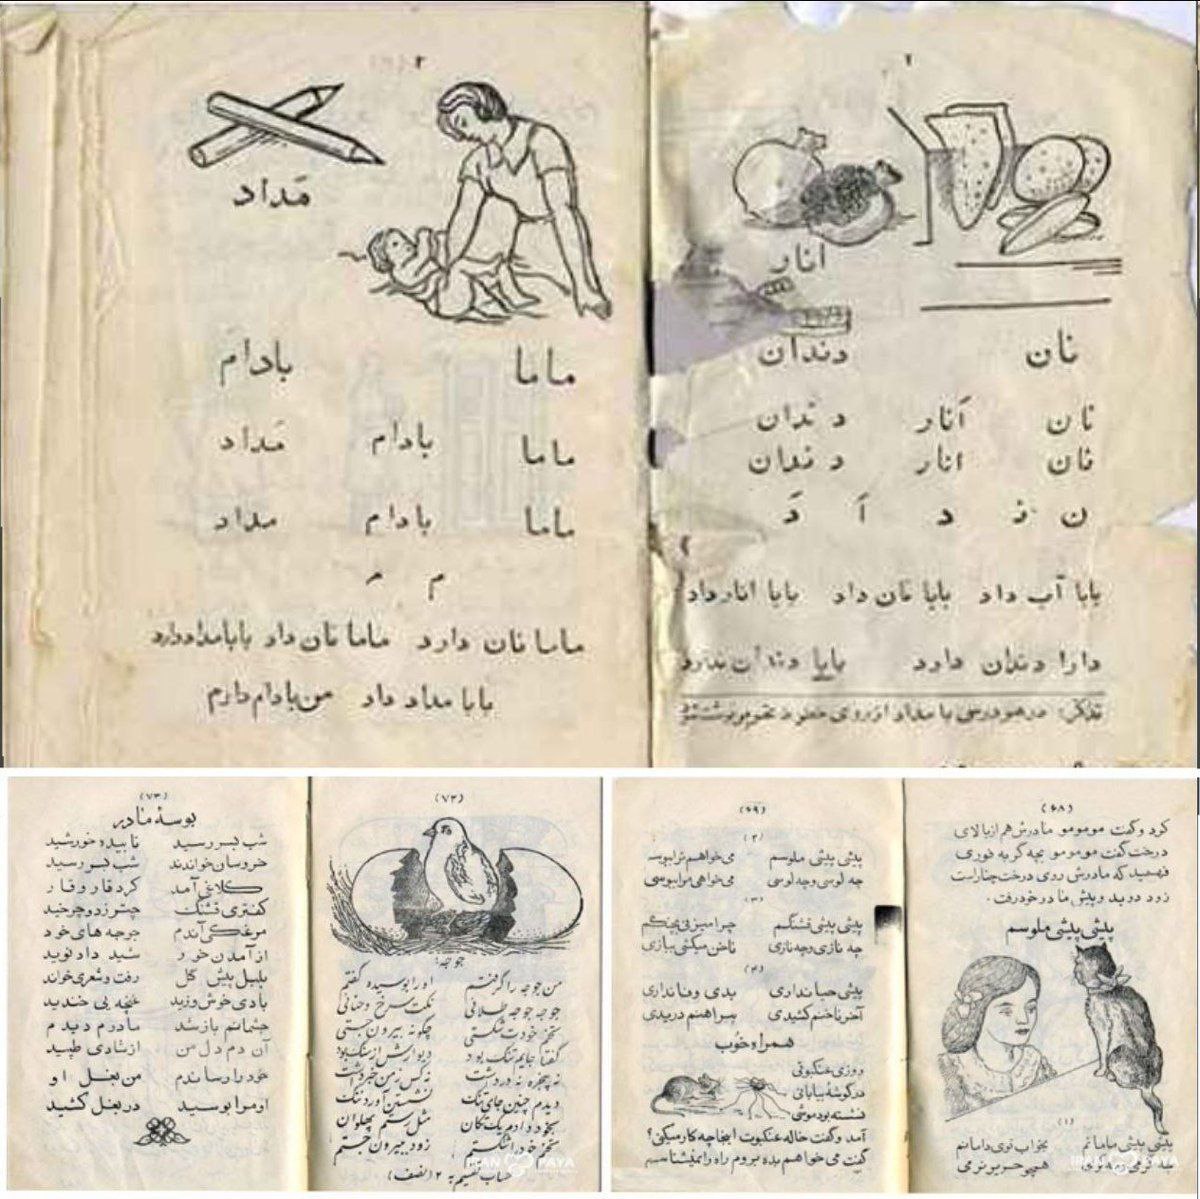 ۲
انار
نان دندان
نان اَنار دندان
نان انار دندان
ن نـ د اَ دَ
بابا آب داد بابا نان داد بابا انار داد
دارا دندان دارد بابا دندان ندارد
تذکر: در هر درسی با مداد از روی نوشته شود
۳
مَداد
ماما بادام
ماما بادام مَداد
ماما بادام مداد
م مـ
ماما نان دارد ماما نان داد بابا مداد دارد
بابا مداد داد من بادام دارم
(۶۸)
کرد و گفت مومومو مادرش هم از بالای
درخت گفت مومومو بچه گربه فوری
فهمید که مادرش روی درخت چنار است
زود دوید و پیش مادر خود رفت.
پیشی پیشی ملوسم
(۱)
پیشی پیشی مامانم بخواب توی دامانم
همچو حریر نرمی
(۶۹)
(۲)
پیشی پیشی ملوسم می‌خواهم ترا ببوسم
چه لوسی و چه لوسی می‌خواهی مرا ببوسی
(۳)
پیشی پیشی قشنگم چرا میزنی بچنگم
چه نازی و چه نازی ناخن میکنی ببازی
(۴)
پیشی حیا نداری بدی وفا نداری
آخر ناخنم کشیدی پیراهنم دریدی
همراه خوب
روزی عنکبوتی
در گوشهٔ بیابانی
نشسته بود موشی
آمد و گفت خاله عنکبوت اینجا چه کار میکنی؟
گفت می‌خواهم بده بروم راه را نمیشناسم
(۷۲)
جوجه:
من جوجه را گرفتم او را بوسیده گفتم
جوجه جوجه طلائی نکت سرخ و حنائی
تخم خود را شکستی چگونه بیرون جستی
گفتا جایم تنگ بود دیوارش از سنگ بود
نه پنجره نه در داشت نه کس ز من خبر داشت
دیدم چنین جای تنگ نشستن آورد ننگ
بخود دادم یک تکان مثل رستم پهلوان
تخم خود را شکستم زود بیرون جستم
حساب تقسیم به ۲ (نصف)
(۷۳)
بوسهٔ مادر
شب بسر رسید تابیده خورشید
خروسان خواندند شب بسر رسید
کلاغی آمد کرد قار و قار
کفتری قشنگ چتر زد و چرخید
مرغکی آندم جوجه‌های خود
از آمدن خور شید داد نوید
بلبل پیش گل رفت و شعری خواند
بادی خوش وزید غنچه بی خندید
چشمانم باز شد مادرم دیدم
آن دم دل من از شادی طپید
خود را رساندم من بغل او
او مرا بوسید در بغل کشید
IRAN PAYA
IRAN PAYA